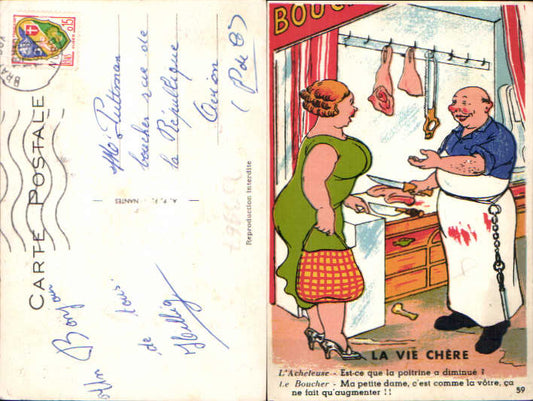 CARTE POSTALE
0,15
boucher rue de
la République
Avion
(P de C)
A. P. F. - NANTES
Reproduction interdite
Bonjour
de tous
BOUC
LA VIE CHÈRE
L'Acheteuse - Est-ce que la poitrine a diminué ?
Le Boucher - Ma petite dame, c'est comme la vôtre, ça
ne fait qu'augmenter !!
59